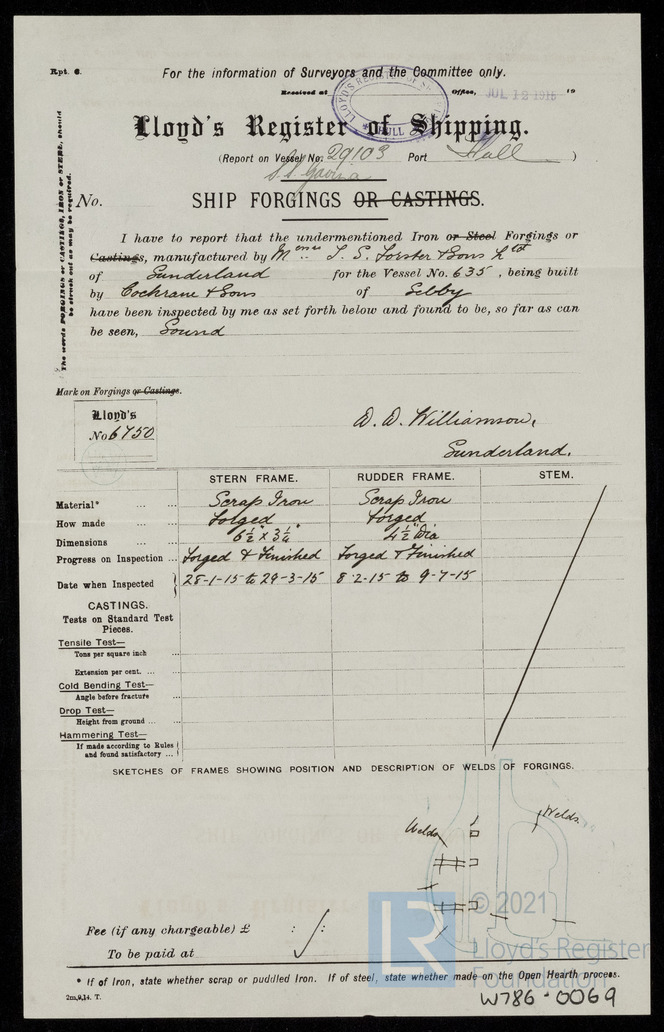 Rpt. 6.
For the information of Surveyors and the Committee only.
Received at Office, JUL 12 1915 19
LLOYD'S REGISTER OF SHIPPING HULL
Lloyd's Register of Shipping.
(Report on Vessel No. 29103 Port Hull )
S.S.
The words FORGINGS or CASTINGS, IRON or STEEL, should
be struck out as may be required.
No. SHIP FORGINGS OR CASTINGS.
I have to report that the undermentioned Iron or Steel Forgings or
Castings, manufactured by Messrs. T. S. Forster & Sons Ltd
of Sunderland for the Vessel No. 635, being built
by Cochrane & Sons of Selby
have been inspected by me as set forth below and found to be, so far as can
be seen, Sound
Mark on Forgings or Castings.
Lloyd's
No 6750
D. D. Williamson,
Sunderland.
STERN FRAME. RUDDER FRAME. STEM.
Material* ... ... Scrap Iron Scrap Iron
How made ... ... Forged Forged
Dimensions ... ... 6½" x 3¼" 4½" Dia
Progress on Inspection ... Forged & Finished Forged & Finished
Date when Inspected 28-1-15 to 29-3-15 8-2-15 to 9-7-15
CASTINGS.
Tests on Standard Test
Pieces.
Tensile Test—
Tons per square inch
Extension per cent. ... ...
Cold Bending Test—
Angle before fracture ...
Drop Test—
Height from ground ... ...
Hammering Test—
If made according to Rules
and found satisfactory ...
SKETCHES OF FRAMES SHOWING POSITION AND DESCRIPTION OF WELDS OF FORGINGS.
Welds
Welds
Fee (if any chargeable) £ : :
To be paid at
© 2021
LR
Lloyd's Register
Foundation
* If of Iron, state whether scrap or puddled Iron. If of steel, state whether made on the Open Hearth process.
2m,9,14. T.
W786-0069